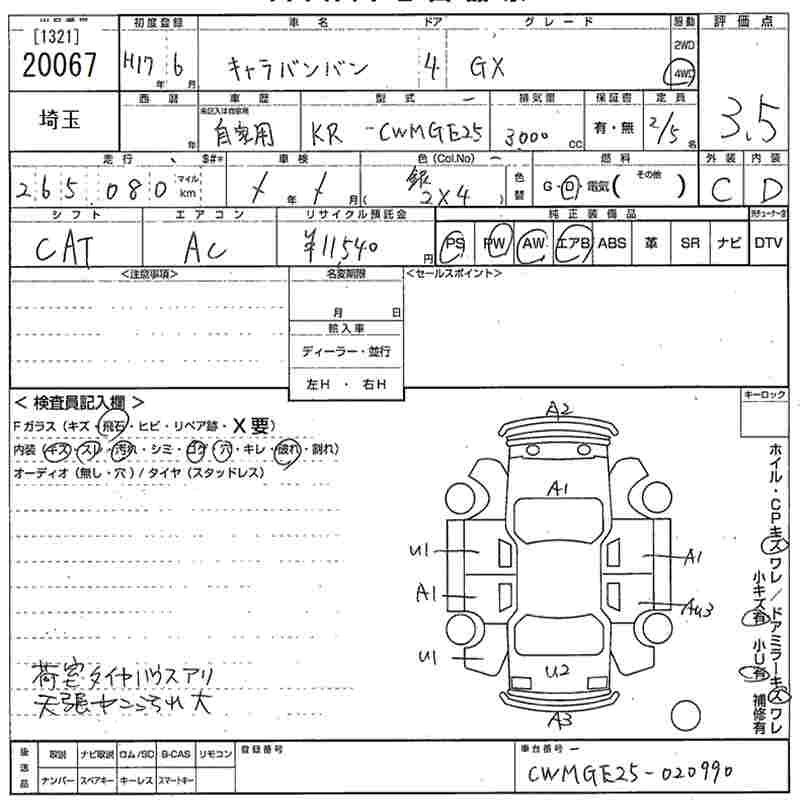 [1321]
20067
初度登録
車名
ドア
グレード
駆動
評価点
H17年 6月
キャラバンバン
4
GX
2WD
4WD
3.5
埼玉
西暦
年
車歴
型式
排気量
保証書
定員
自家用
KR - CWMGE25
3,000cc
有・無
2/5名
走行
$#*
車検
色(Col.No)
色替
燃料
外装
内装
265,080
マイル
km
年
月
銀
2X4
G・D・電気(その他)
C
D
シフト
エアコン
リサイクル預託金
純正装備品
CAT
AC
¥11,540円
PS PW AW エアB ABS 革 SR ナビ DTV
<注意事項>
名変期限
<セールスポイント>
月 日
輸入車
ディーラー・並行
左H・右H
<検査員記入欄>
キーロック
Fガラス(キズ・飛石・ヒビ・リペア跡・X要)
内装(キズ・スレ・汚れ・シミ・コゲ・穴・キレ・破れ・割れ)
オーディオ(無し・穴)/タイヤ(スタッドレス)
A2
A1
U1
A1
A1
AU3
U1
U2
A3
ホイル・CPキズワレ/ドアミラーキズワレ
小キズ有 小U有 補修有
荷室タイヤハウスアリ
後送品
取説 ナビ取説 ロム/SD B-CAS リモコン
ナンバー スペアキー キーレス スマートキー
登録番号
車台番号
CWMGE25-020990